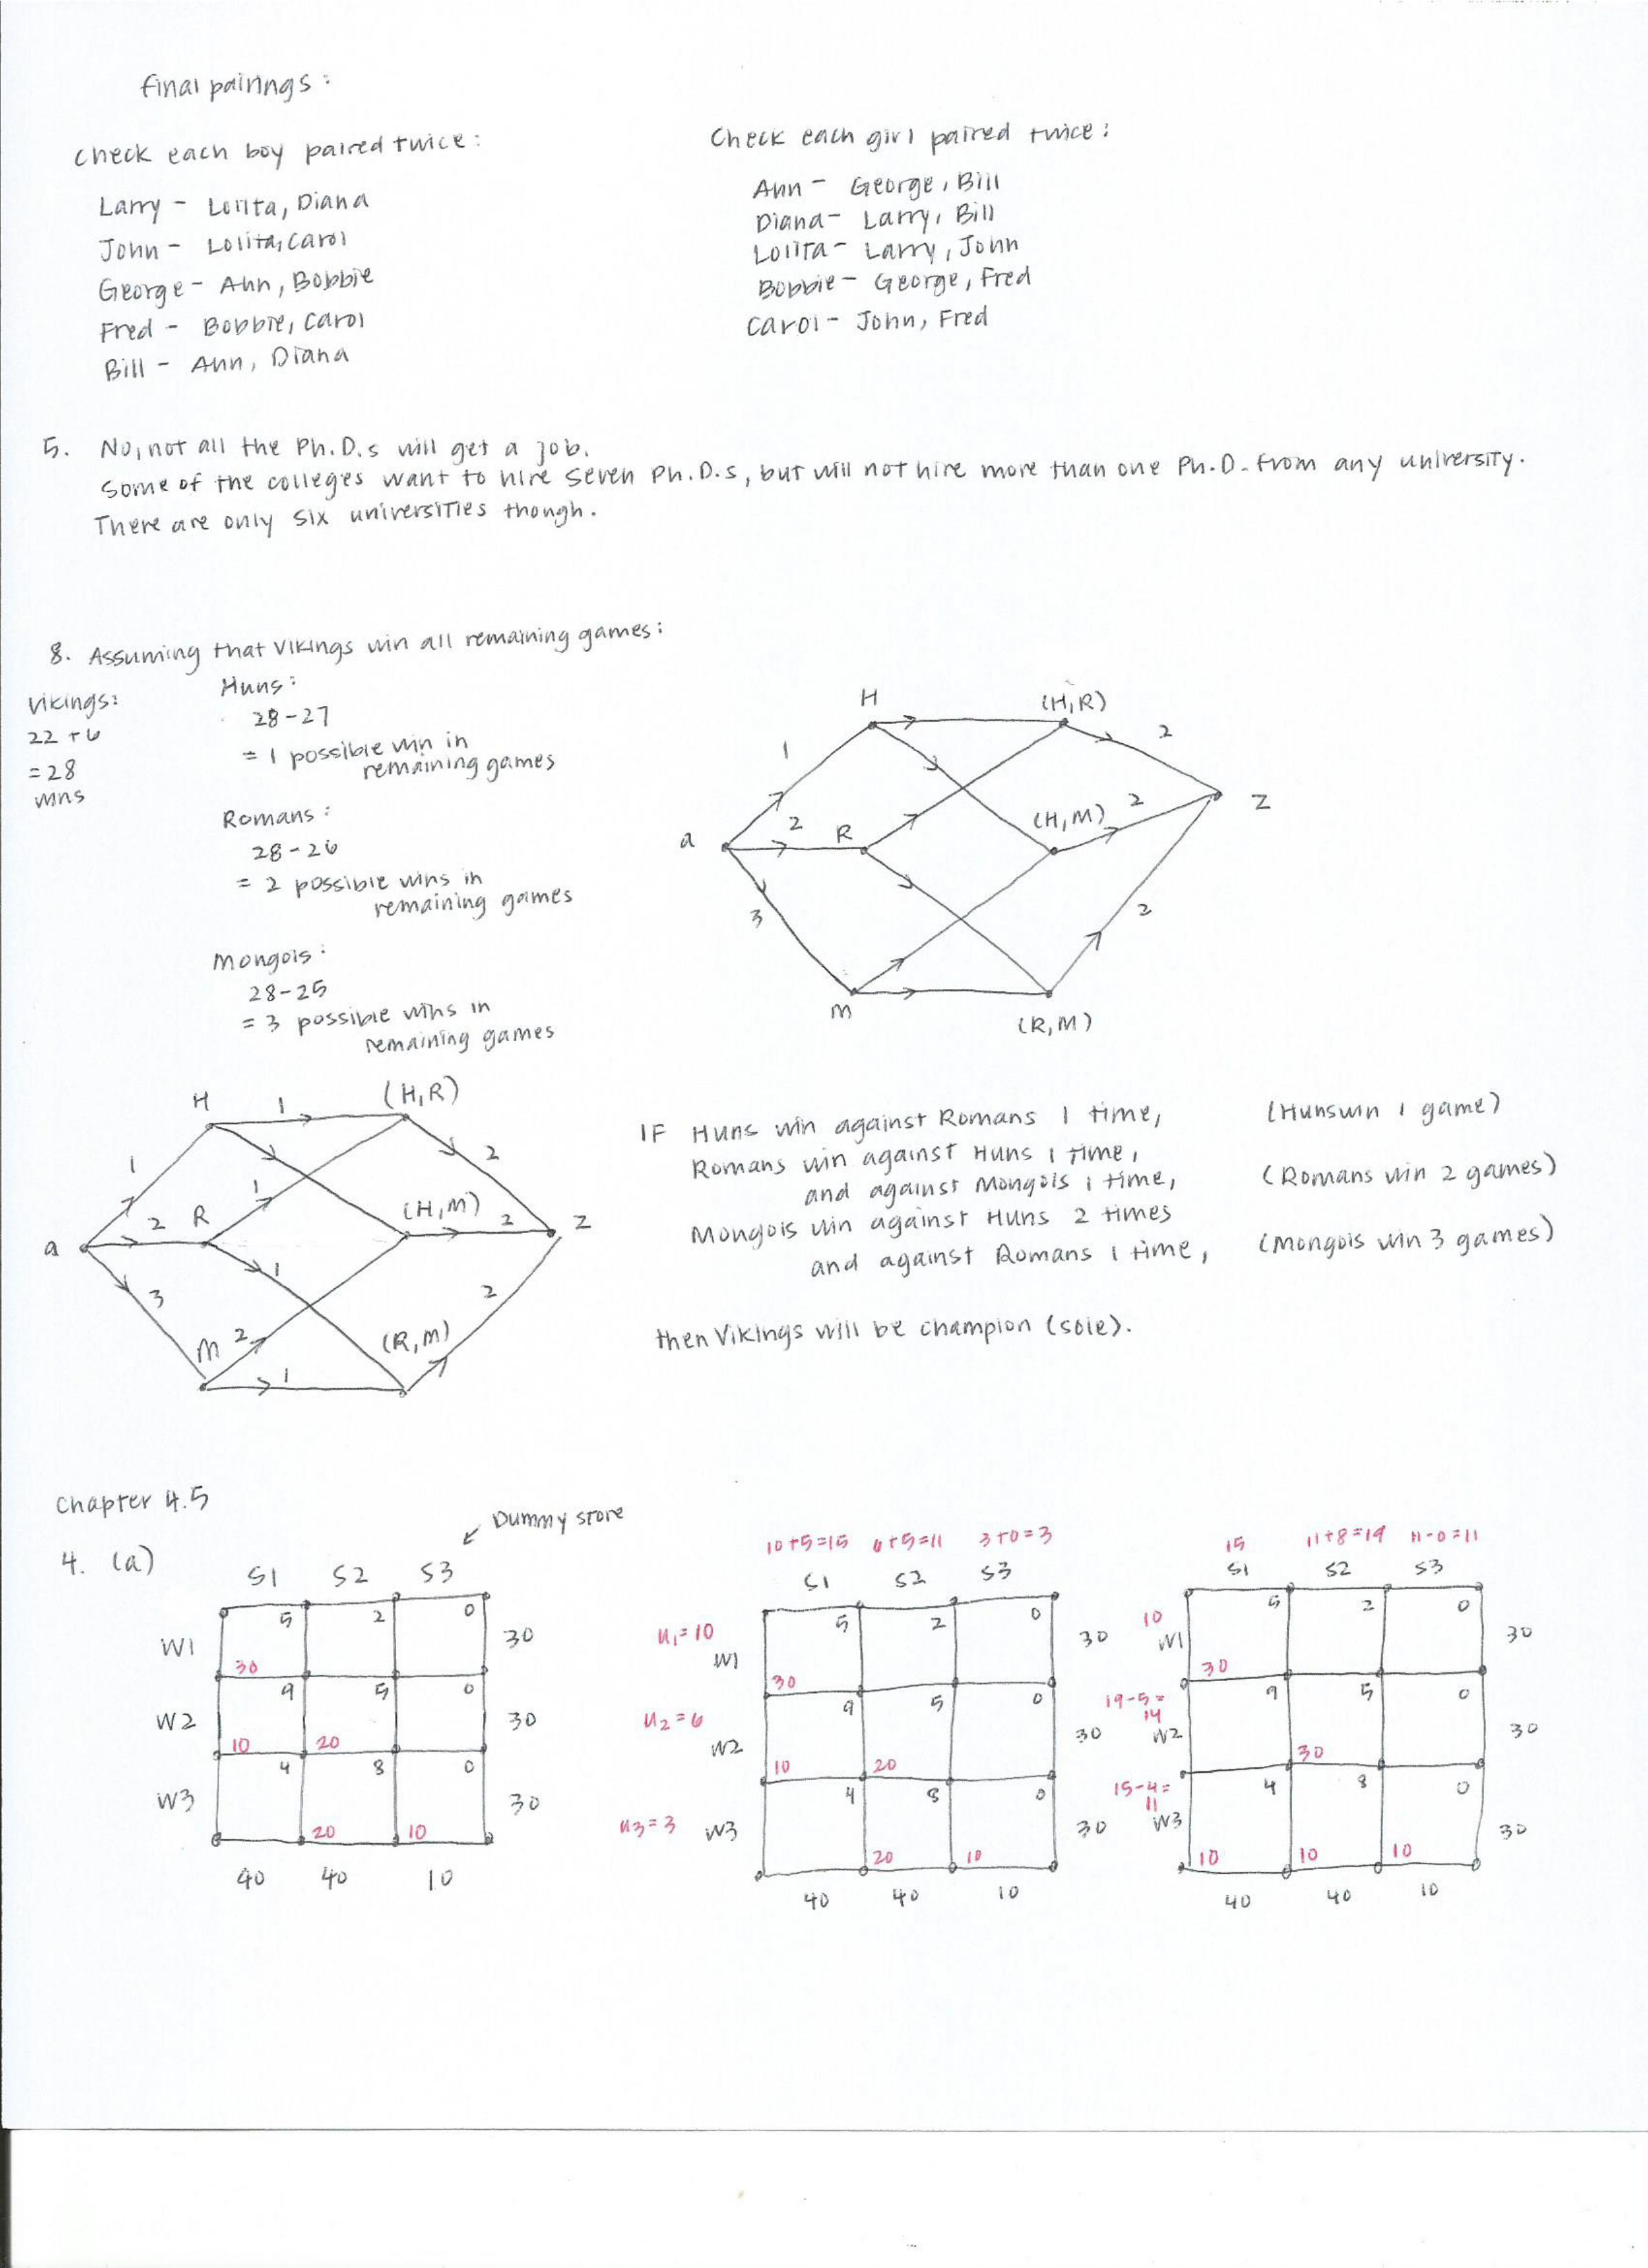 final pairings:
Check each boy paired twice:
Larry - Lolita, Diana
John - Lolita, Carol
George - Ann, Bobbie
Fred - Bobbie, Carol
Bill - Ann, Diana
Check each girl paired twice:
Ann - George, Bill
Diana - Larry, Bill
Lolita - Larry, John
Bobbie - George, Fred
Carol - John, Fred
5. No, not all the Ph.D.s will get a job.
Some of the colleges want to hire seven Ph.D.s, but will not hire more than one Ph.D. from any university.
There are only six universities though.
8. Assuming that Vikings win all remaining games:
Vikings:
22 + 6
= 28
wins
Huns:
28 - 27
= 1 possible win in
remaining games
Romans:
28 - 26
= 2 possible wins in
remaining games
Mongols:
28 - 25
= 3 possible wins in
remaining games
H (H,R)
1 2
a 2 R (H,M) 2 Z
3 2
M (R,M)
H 1 (H,R)
1 1 2
a 2 R (H,M) 2 Z
3 1 2
M 2 (R,M)
1
IF Huns win against Romans 1 time, (Huns win 1 game)
Romans win against Huns 1 time,
and against Mongols 1 time, (Romans win 2 games)
Mongols win against Huns 2 times
and against Romans 1 time, (Mongols win 3 games)
then Vikings will be champion (sole).
Chapter 4.5
4. (a)
Dummy store
S1 S2 S3
5 2 0
W1 30 30
9 5 0
W2 10 20 30
4 8 0
W3 20 10 30
40 40 10
10+5=15 6+5=11 3+0=3
S1 S2 S3
u1=10 5 2 0
W1 30 30
u2=6 9 5 0
W2 10 20 30
u3=3 4 8 0
W3 20 10 30
40 40 10
15 11+8=19 11-0=11
S1 S2 S3
10 5 2 0
W1 30 30
19-5=
14 9 5 0
W2 30 30
15-4=
11 4 8 0
W3 10 10 10 30
40 40 10